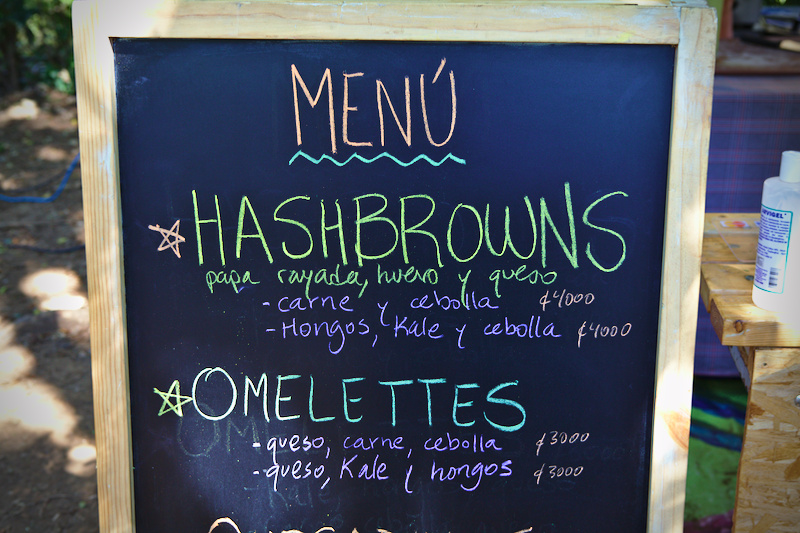 MENÚ
HASHBROWNS
papa rayada, huevo y queso
- carne y cebolla ₡4000
- Hongos, Kale y cebolla ₡4000
OMELETTES
- queso, carne, cebolla ₡3000
- queso, Kale y hongos ₡3000